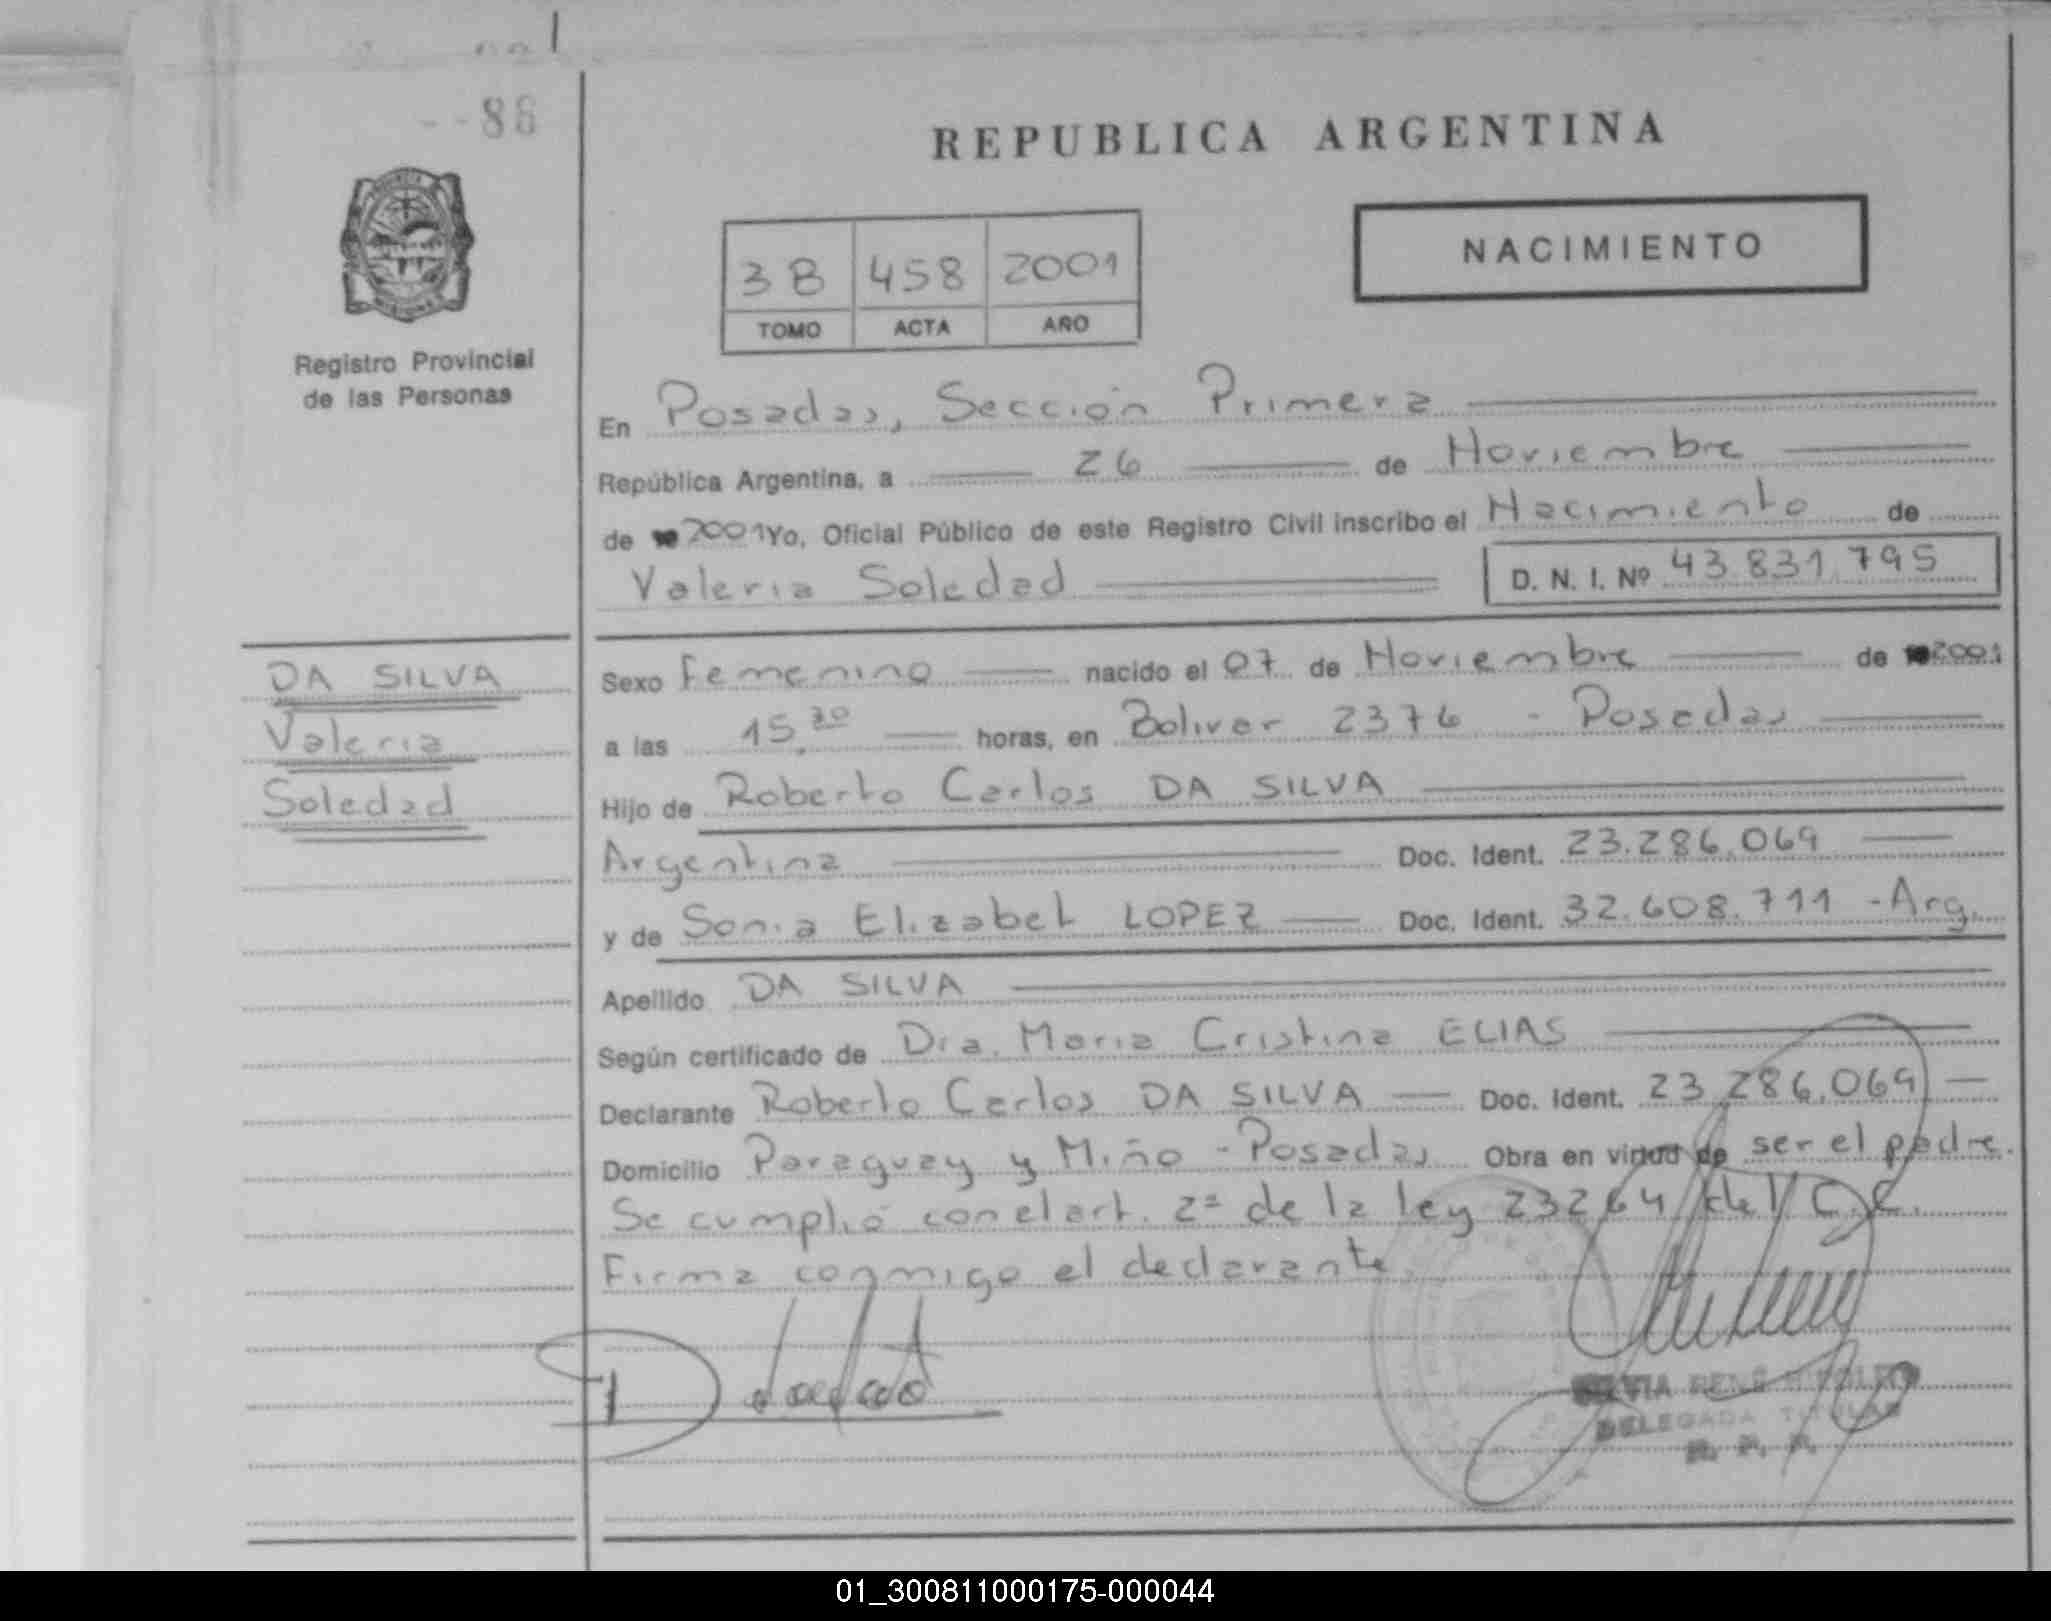 86
REPUBLICA ARGENTINA
NACIMIENTO
3B 458 2001
TOMO ACTA AÑO
Registro Provincial
de las Personas
En Posadas, Sección Primera
República Argentina, a 26 de Noviembre
de 2001 Yo, Oficial Público de este Registro Civil inscribo el Nacimiento de
Valeria Soledad D. N. I. Nº 43.831.795
DA SILVA
Valeria
Soledad
Sexo Femenino nacido el 07 de Noviembre de 2001
a las 15.30 horas, en Bolivar 2376 - Posadas
Hijo de Roberto Carlos DA SILVA
Argentina Doc. Ident. 23.286.069
y de Sonia Elizabet LOPEZ Doc. Ident. 32.608.711 - Arg.
Apellido DA SILVA
Según certificado de Dra. Maria Cristina ELIAS
Declarante Roberto Carlos DA SILVA Doc. Ident. 23.286.069
Domicilio Paraguay y Miño - Posadas Obra en virtud de ser el padre.
Se cumplió con el art. 2º de la ley 23264 del C.C.
Firma conmigo el declarante.
DELEGADA TITULAR
R. P. P.
01_300811000175-000044